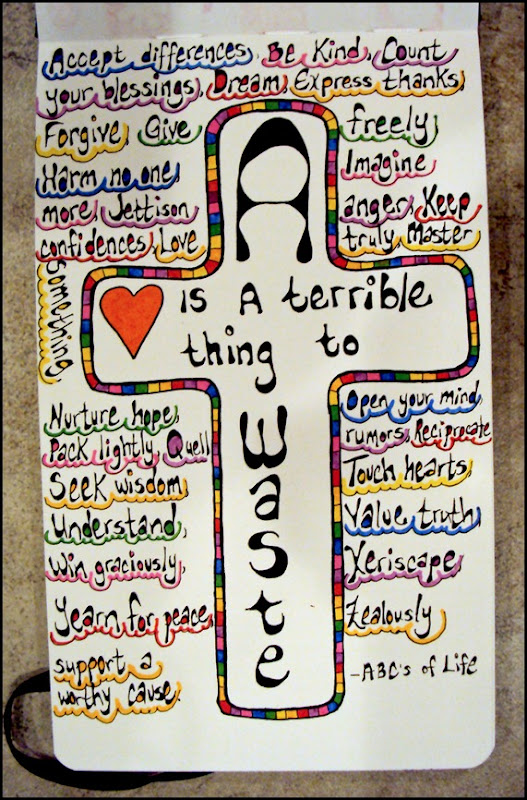 Accept differences, Be Kind, Count
your blessings, Dream, Express thanks,
Forgive, Give freely
Harm no one, Imagine
more, Jettison anger, Keep
confidences, Love truly, Master
something,
Nurture hope, Open your mind,
Pack lightly, Quell rumors, Reciprocate
Seek wisdom, Touch hearts,
Understand, Value truth,
Win graciously, Xeriscape,
Yearn for peace, Zealously
support a
worthy cause.
-ABC's of Life
A
is A terrible
thing to
Waste